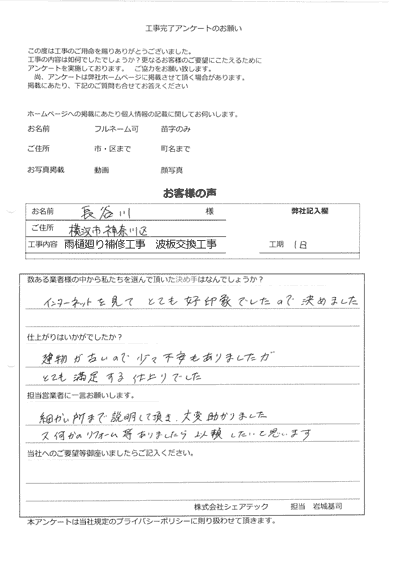 工事完了アンケートのお願い
この度は工事のご用命を賜りありがとうございました。
工事の内容は如何でしたでしょうか？更なるお客様のご要望にこたえるために
アンケートを実施しております。　ご協力をお願い致します。
尚、アンケートは弊社ホームページに掲載させて頂く場合があります。
掲載にあたり、下記のご質問も合せてお答えください
ホームページへの掲載にあたり個人情報の記載に関してお伺いします。
お名前　フルネーム可　苗字のみ
ご住所　市・区まで　町名まで
お写真掲載　動画　顔写真
お客様の声
お名前　長谷川　様　弊社記入欄
ご住所　横浜市神奈川区
工事内容　雨樋廻り補修工事　波板交換工事　工期　1日
数ある業者様の中から私たちを選んで頂いた決め手はなんでしょうか？
インターネットを見て とても好印象でしたので 決めました
仕上がりはいかがでしたか？
建物が古いので少々不安もありましたが
とても満足する仕上りでした
担当営業者に一言お願いします。
細かい所まで説明して頂き、大変助かりました
又何かのリフォーム等ありましたら依頼したいと思います
当社へのご要望等御座いましたらご記入ください。
株式会社シェアテック　担当　岩城基司
本アンケートは当社規定のプライバシーポリシーに則り扱わせて頂きます。